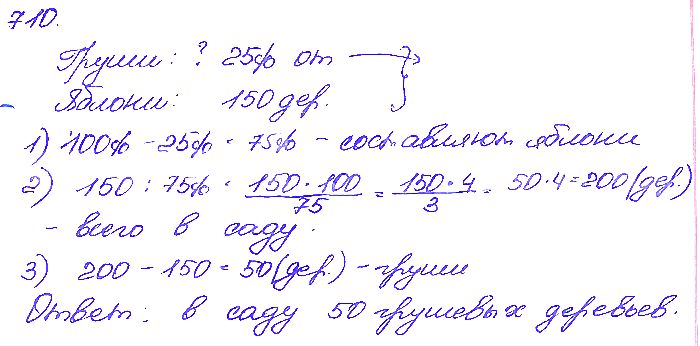 710.
Груши: ? 25% от
Яблони: 150 дер.
1) 100% - 25% = 75% - составляют яблони
2) 150 : 75% = 150·100/75 = 150·4/3 = 50·4=200(дер.)
- всего в саду.
3) 200 - 150 = 50(дер.) - груши
Ответ: в саду 50 грушевых деревьев.